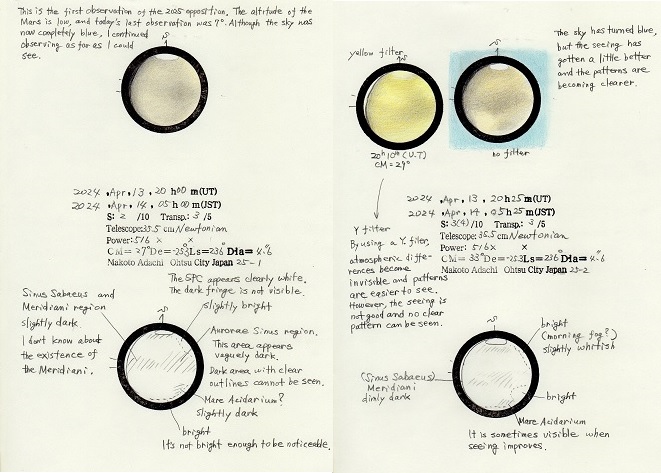 This is the first observation of the 2025 opposition. The altitude of the
Mars is low, and today's last observation was 7°. Although the sky was
now completely blue, I continued
observing as far as I could
see.
S
2024 .Apr, 13 , 20 h00 m(UT)
2024 .Apr, 14 , 05 h00 m(JST)
S: 2 /10 Transp.: 3 /5
Telescope:35.5 cm Newtonian
Power:516 × ×
CM=27°De=-25.3Ls=236° Dia=4."6
Makoto Adachi Ohtsu City Japan 25-1
The SPC appears clearly white.
The dark fringe is not visible.
Sinus Sabaeus and
Meridiani region
slightly dark.
I don't know about
the existence of
the Meridiani.
S
slightly bright
Aurorae Sinus region.
This area appears
vaguely dark.
Dark area with clear
outlines cannot be seen.
Mare Acidarium?
slightly dark
bright
It's not bright enough to be noticeable.
yellow filter
S
S
The sky has turned blue,
but the seeing has
gotten a little better
and the patterns are
becoming clearer.
20h10m (U.T)
CM=29°
no filter
2024 .Apr, 13 , 20h25m(UT)
2024 .Apr, 14 , 05h25m(JST)
S: 3(4) /10 Transp.: 3 /5
Telescope:35.5 cm Newtonian
Power:516 × ×
CM= 33°De=-25.3Ls=236 Dia=4."6
Makoto Adachi Ohtsu City Japan 25-2
Y filter
By using a Y. filer,
atmospheric diffe-
rences become
invisible and patterns
are easier to see.
However, the seeing is
not good and no clear
pattern can be seen.
S
bright
(morning fog?)
slightly whitish
(Sinus Sabaeus)
Meridiani
dimly dark
bright
Mare Acidarium
It is sometimes visible when
seeing improves.